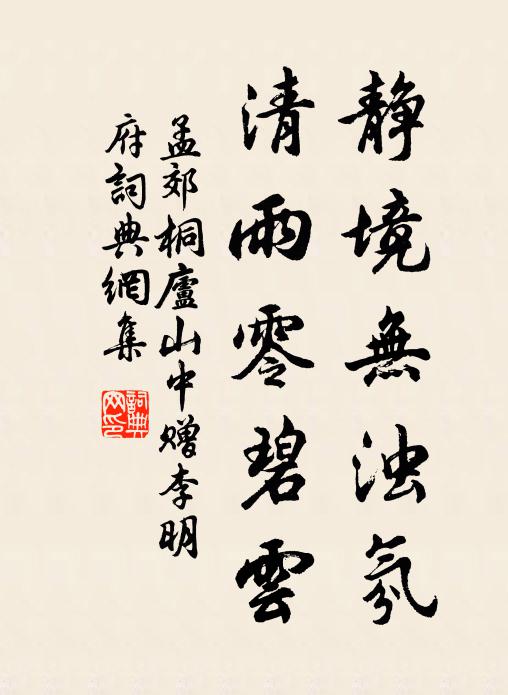 静境無浊氛
清雨零碧雲
孟郊桐廬山中赠李明
府詞典網集
詞典
网印